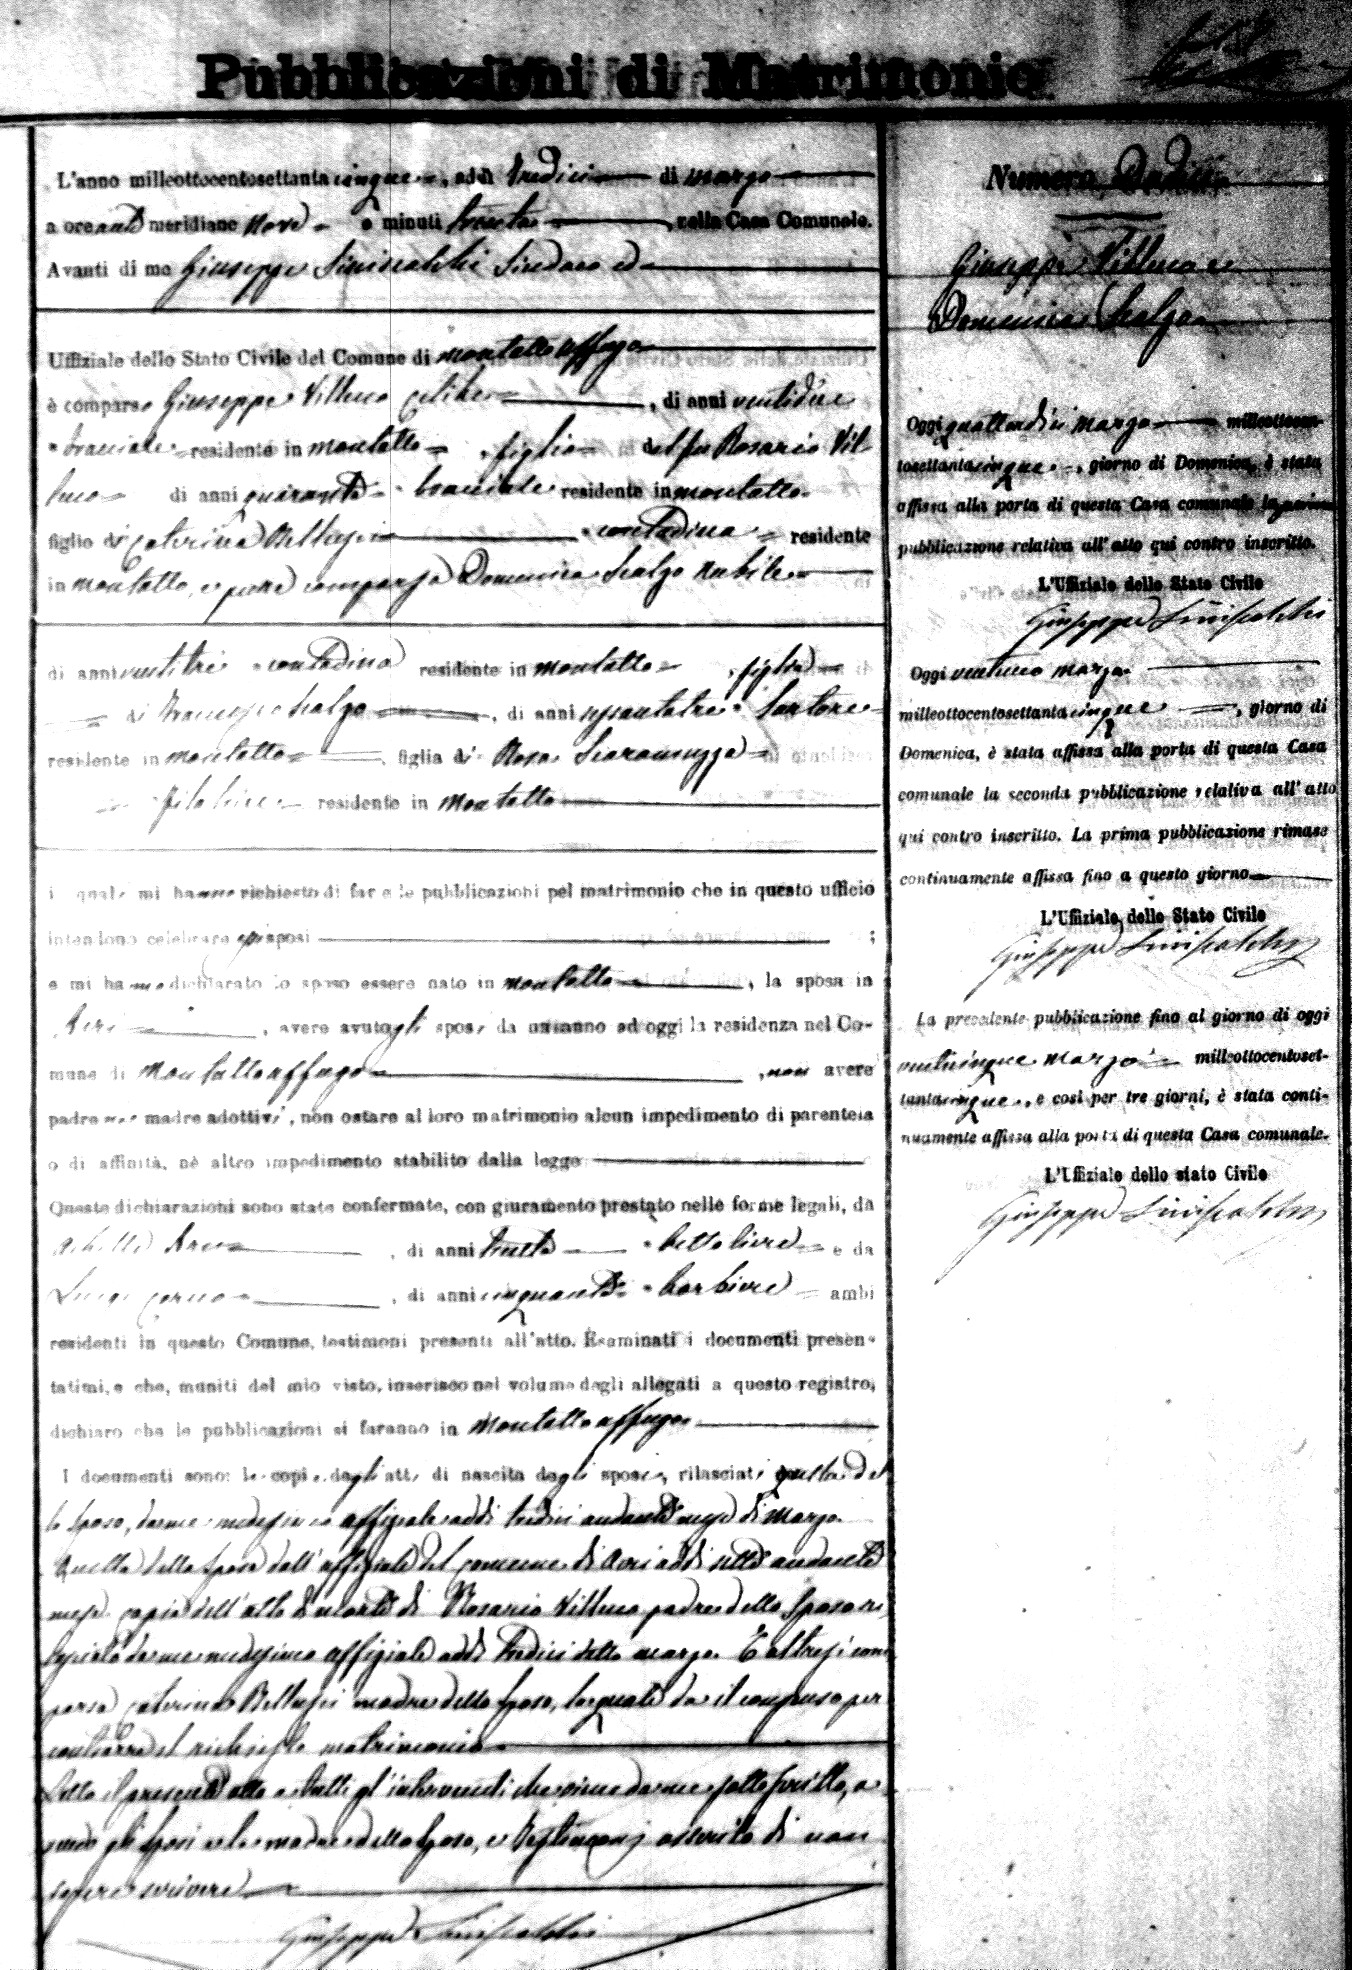 Pubblicazioni di Matrimonio
L'anno milleottocentosettanta cinque, addì tredici di marzo
a ore anti meridiane nove e minuti trenta, nella Casa Comunale.
Avanti di me Giuseppe Siniscalchi Sindaco ed
Uffiziale dello Stato Civile del Comune di Montalto Uffugo
è comparso Giuseppe Villuco celibe, di anni ventidue
bracciale residente in Montalto, figlio del fu Rosario Vil
luco di anni quaranta bracciale residente in Montalto
figlio di Caterina Bellusci contadina residente
in Montalto, e pure comparsa Domenica Scalzo nubile
di anni ventitre contadina residente in Montalto, figlia
di Francesco Scalzo, di anni sessantatre Sartore
residente in Montalto figlia di Rosa Scaramuzzo
filatrice residente in Montalto
i quali mi hanno richiesto di far e le pubblicazioni pel matrimonio che in questo ufficio
intendono celebrare essi sposi ;
e mi hanno dichiarato lo sposo essere nato in Montalto, la sposa in
Acri, avere avuto gli sposi da un anno ad oggi la residenza nel Co-
mune di Montalto Uffugo, non avere
padre nè madre adottivi, non ostare al loro matrimonio alcun impedimento di parentela
o di affinità, nè altro impedimento stabilito dalla legge
Queste dichiarazioni sono state confermate, con giuramento prestato nelle forme legali, da
Achille, di anni trenta bettoliere e da
Luigi, di anni cinquanta barbiere ambi
residenti in questo Comune, testimoni presenti all'atto. Esaminati i documenti presen-
tatimi, e che, muniti del mio visto, inserisco nel volume degli allegati a questo registro,
dichiaro che le pubblicazioni si faranno in Montalto Uffugo
I documenti sono: le copie degli atti di nascita degli sposi, rilasciati quella del
lo sposo, da me medesimo uffiziale addì tredici andante mese di Marzo.
Quella della sposa dall'uffiziale del comune di Acri addì sette andante
mese. copia dell'atto di morte di Rosario Villuco padre dello sposo ri
lasciata da me medesimo uffiziale addì tredici detto marzo. E altresì com
parsa Caterina Bellusci madre dello sposo, la quale da il consenso per
contrarre il richiesto matrimonio
Letto il presente atto a tutti gl'intervenuti che viene da me sottoscritto, a
vendo gli sposi e la madre dello sposo, e testimoni asserito di non
sapere scrivere
Giuseppe Siniscalchi
Numero Dodici
Giuseppe Villuco e
Domenica Scalzo
Oggi quattordici marzo milleottocen-
tosettantacinque, giorno di Domenica, è stata
affissa alla porta di questa Casa comunale la prima
pubblicazione relativa all'atto qui contro inscritto.
L'Uffiziale dello Stato Civile
Giuseppe Siniscalchi
Oggi ventuno marzo
milleottocentosettanta cinque, giorno di
Domenica, è stata affissa alla porta di questa Casa
comunale la seconda pubblicazione relativa all'atto
qui contro inscritto. La prima pubblicazione rimase
continuamente affissa fino a questo giorno
L'Uffiziale dello Stato Civile
Giuseppe Siniscalchi
La precedente pubblicazione fino al giorno di oggi
venticinque marzo milleottocentoset-
tantacinque, e così per tre giorni, è stata conti-
nuamente affissa alla porta di questa Casa comunale.
L'Uffiziale dello stato Civile
Giuseppe Siniscalchi